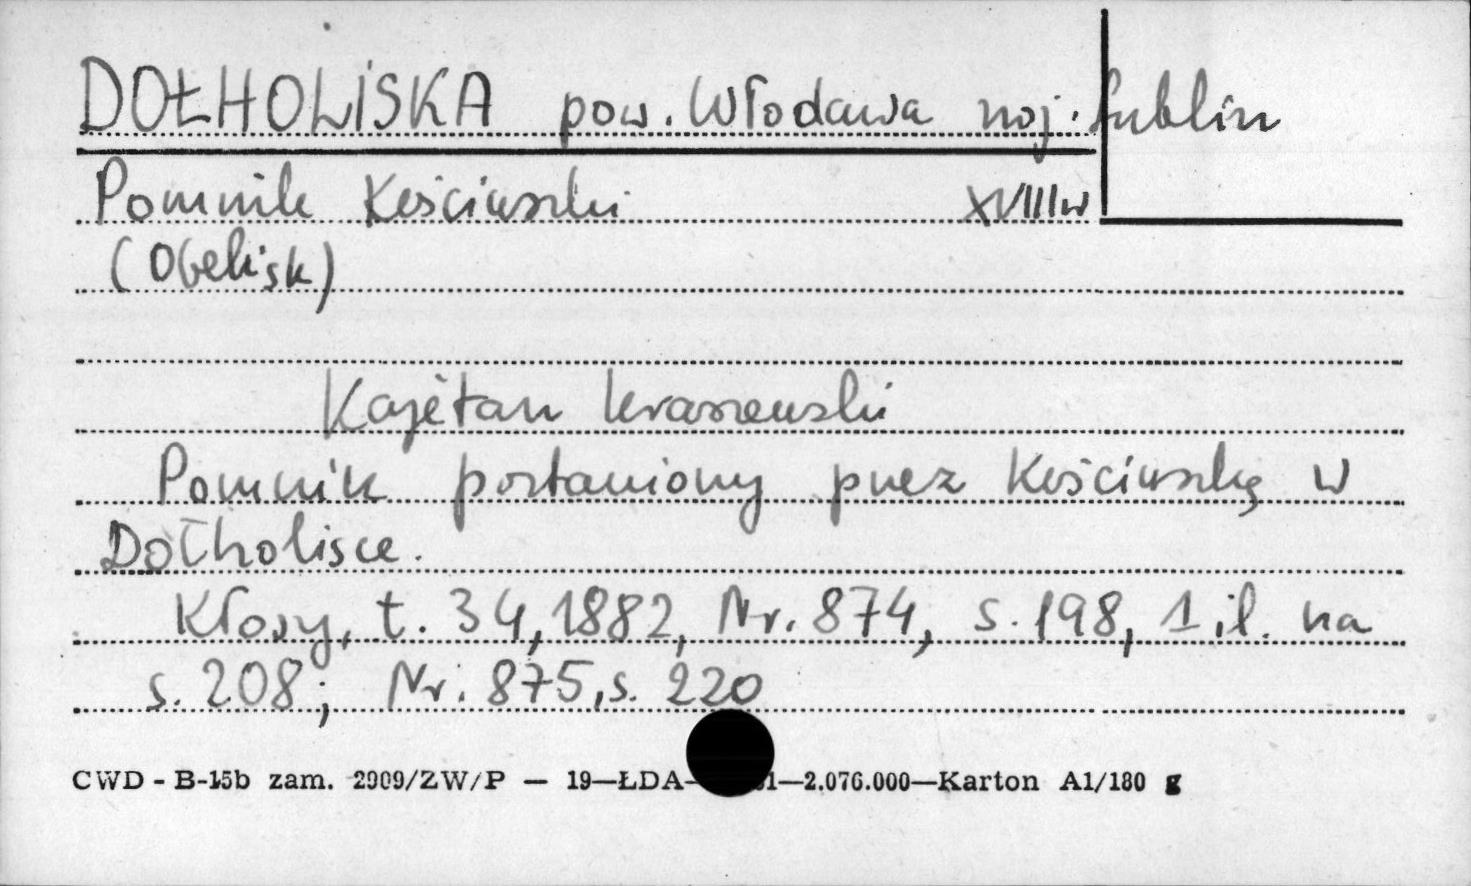 DOŁHOLISKA pow. Włodawa woj. Lublin
Pomnik Kościuszki XVIII w
(Obelisk)
Kajetan Kraszewski
Pomnik postawiony przez Kościuszkę w
Dołholisce.
Kłosy, t. 34, 1882, Nr. 874, s. 198, 1 il. na
s. 208; Nr. 875, s. 220
CWD - B-15b zam. 2909/ZW/P — 19—ŁDA- 1—2.076.000—Karton A1/180 g